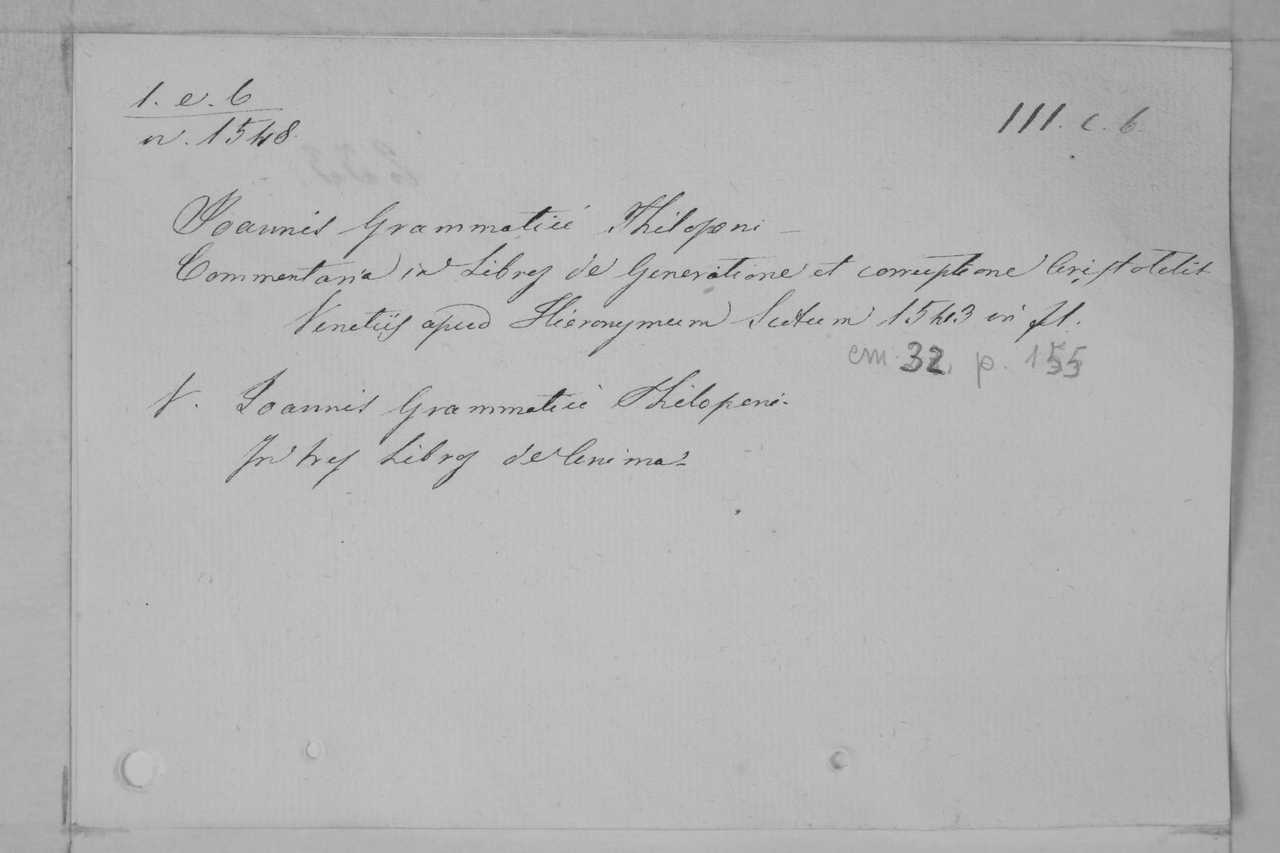 1. e. 6
n. 1548.
III. c. 6
Joannis Grammaticii Philoponi
Commentaria in Libros de Generatione et corruptione Aristotelis
Venetijs apud Hieronymum Scotum 1543 in fl.
cm 32, p. 155
V. Joannis Grammaticii Philoponi
In tres Libros de Anima